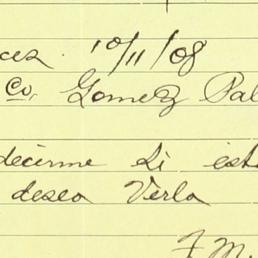 10/11/08
Co. Gomez Pal
decirme si est
deseo Verla
F. M.